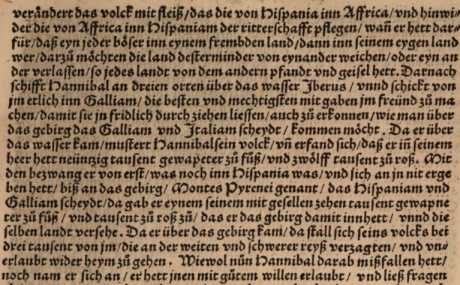 verändert das volck mit fleiß/das die von Hispania inn Affrica/vnd hinwi-
der die von Affrica inn Hispaniam der ritterschafft pflegen/wañ er hett dar-
für/daß eyn jeder böser inn eynem frembden land/dann inn seinem eygen land
wer/darzů möchten die land desterminder von eynander weichen/oder eyn an
der verlassen/so jedes landt von dem andern pfandt vnd geisel hett. Darnach
schifft Hannibal an dreien orten über das wasser Iberus/vnnd schickt von
jm etlich inn Galliam/die besten vnd mechtigsten mit gaben jm freünd zů ma
chen/damit sie jn fridlich durch ziehen liessen/auch zů erkonnen/wie man über
das gebirg das Galliam vnd Italiam scheydt/kommen möcht. Da er über
das wasser kam/mustert Hannibal sein volck/vñ erfand sich/daß er iñ seinem
heer hett neüntzig tausent gewapeter zů fůß/vnd zwölff tausent zů roß. Mit
den bezwang er von erst/was noch inn Hispania was/vnd sich an jn nit erge
ben hett/biß an das gebirg/Montes Pyrenei genant/das Hispaniam vnd
Galliam scheydt/da gab er eynem seinem mit gesellen zehen tausent gewapne
ter zů fůß/vnd tausent zů roß zů/das er das gebirg damit innhett/vnnd die
selben landt versehe. Da er über das gebirg kam/da stall sich seins volcks bei
drei tausent von jm/die an der weiten vnd schwerer reyß verzagten/vnd vn-
erlaubt wider heym zů gehen. Wiewol nůn Hannibal darab mißfallen hett/
noch nam er sich an/er hett jnen mit gůtem willen erlaubt/vnd ließ fragen